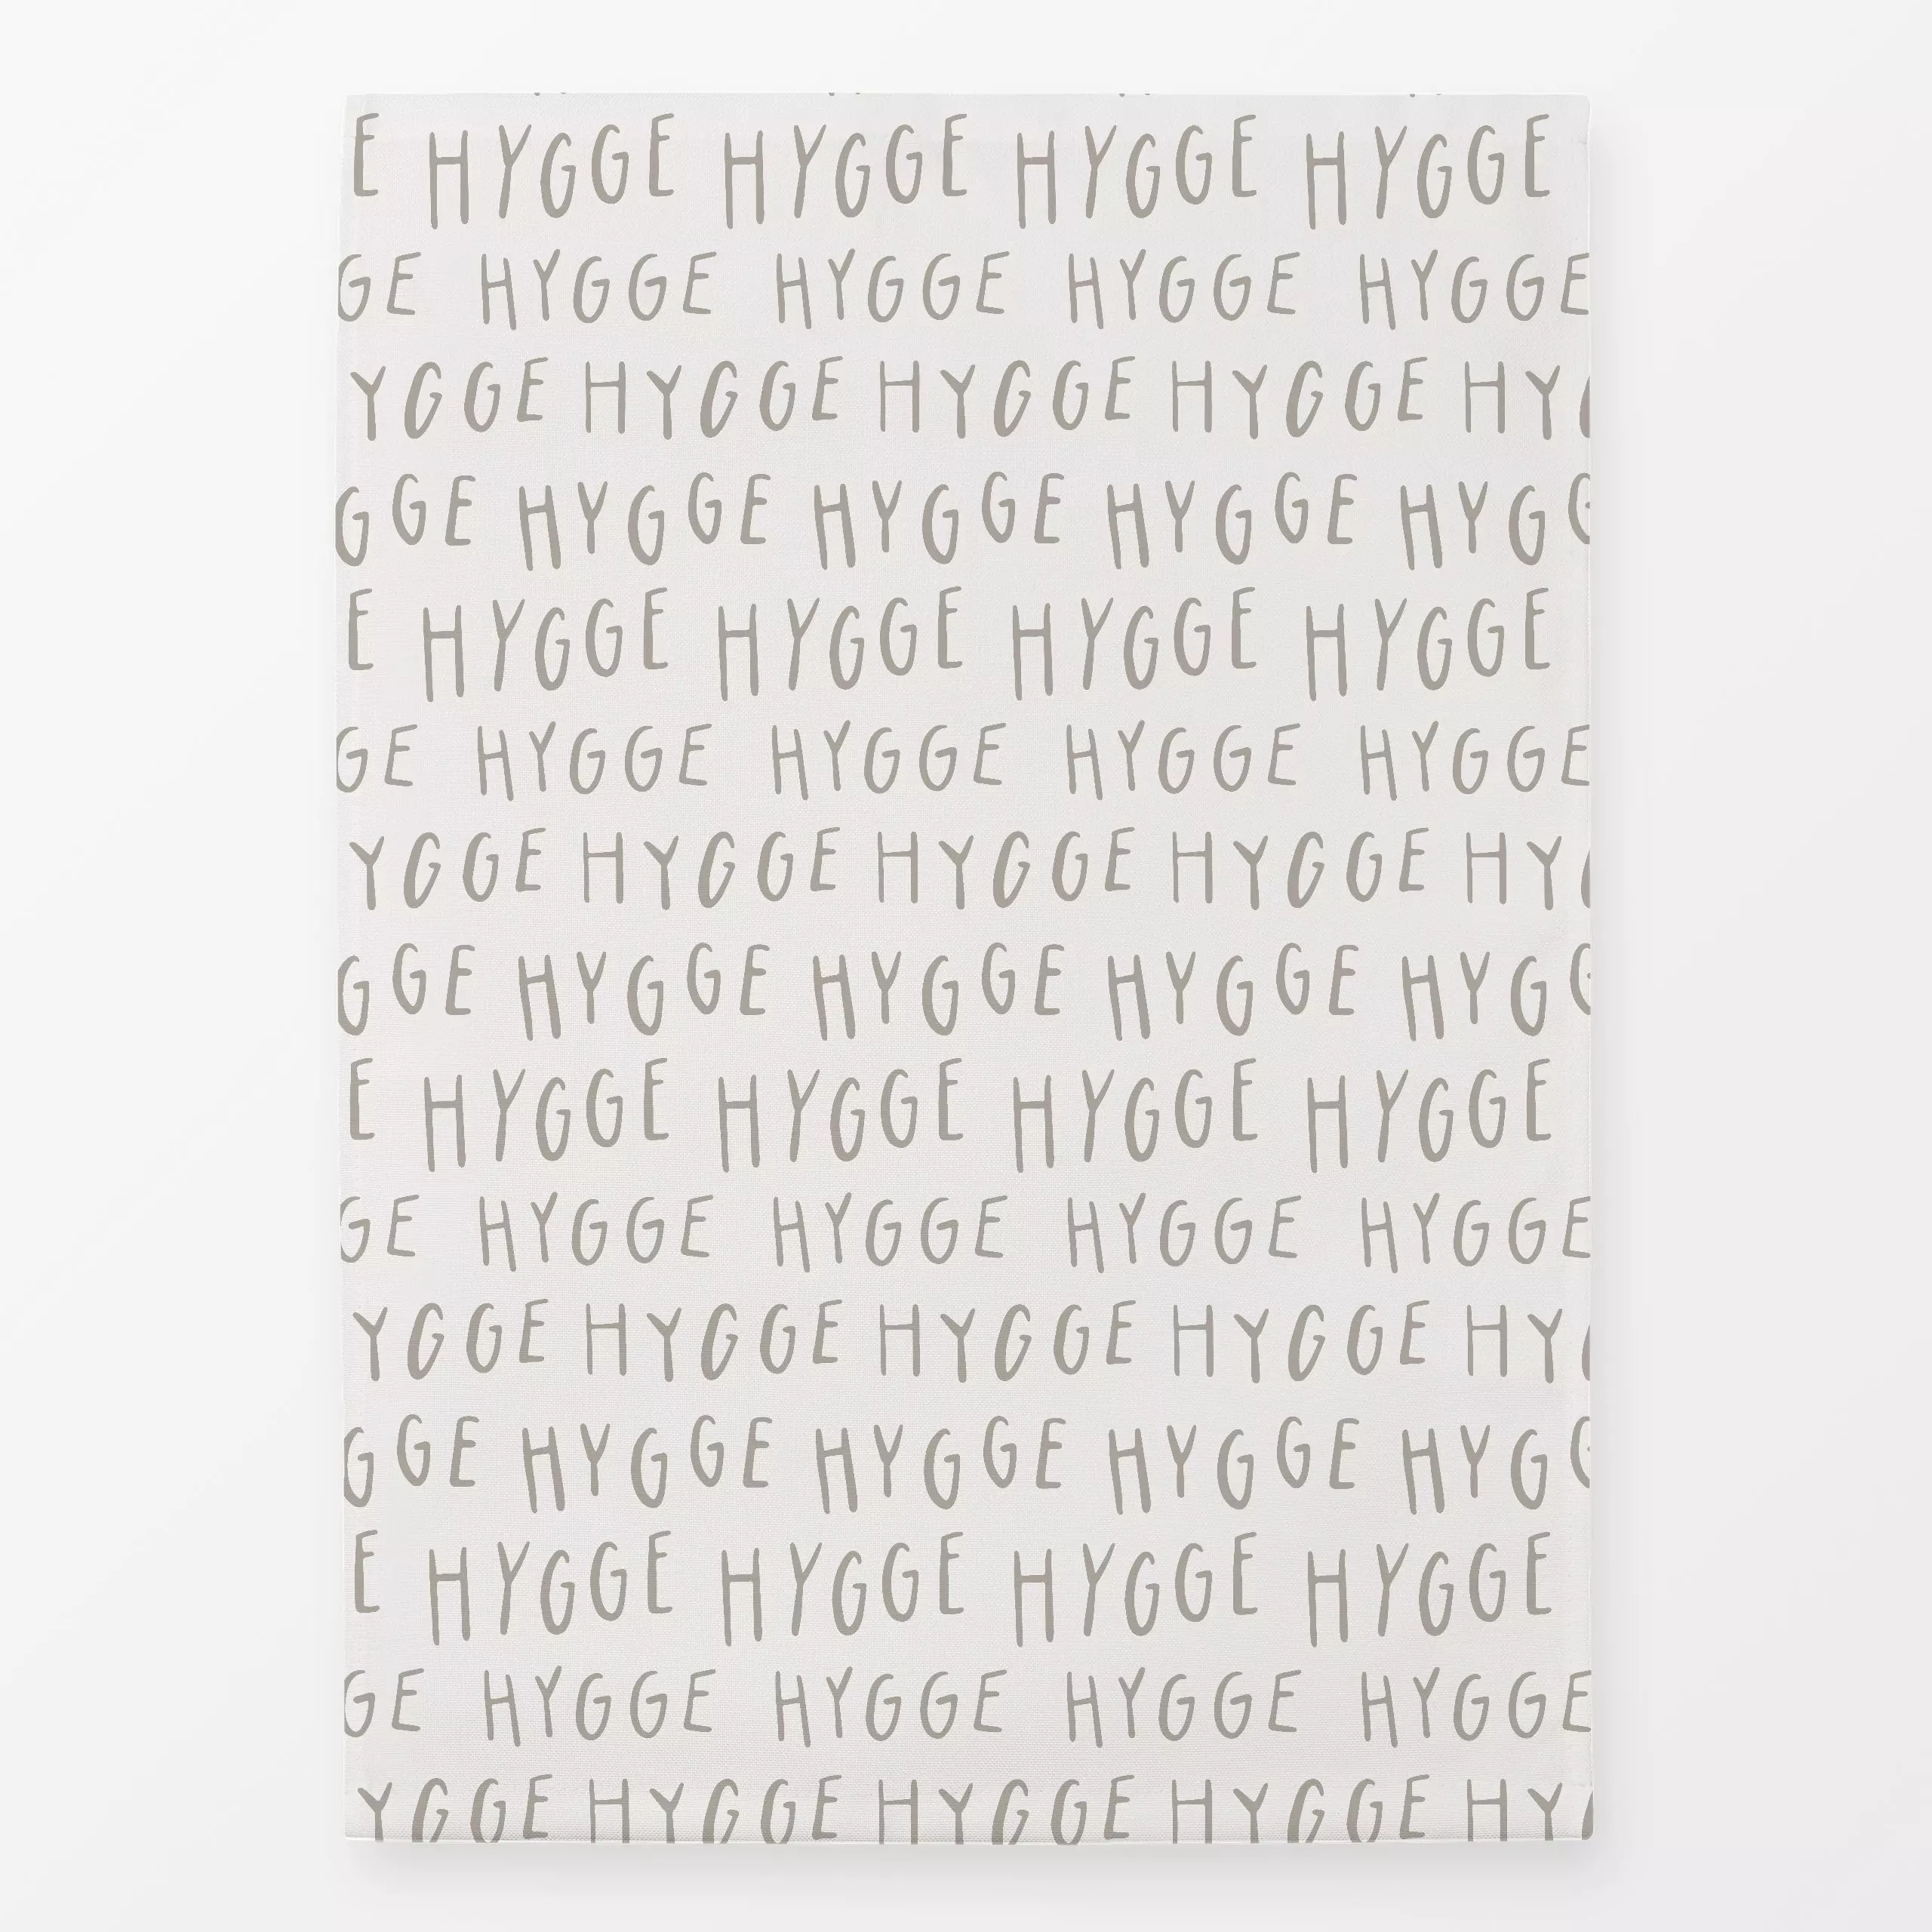 E HYGGE HYGGE HYGGE HYGGE
GE HYGGE HYGGE HYGGE HYGGE
YGGE HYGGE HYGGE HYGGE HY
GGE HYGGE HYGGE HYGGE HYGG
E HYGGE HYGGE HYGGE HYGGE
GE HYGGE HYGGE HYGGE HYGGE
YGGE HYGGE HYGGE HYGGE HY
GGE HYGGE HYGGE HYGGE HYGG
E HYGGE HYGGE HYGGE HYGGE
GE HYGGE HYGGE HYGGE HYGGE
YGGE HYGGE HYGGE HYGGE HY
GGE HYGGE HYGGE HYGGE HYGG
E HYGGE HYGGE HYGGE HYGGE
GE HYGGE HYGGE HYGGE HYGGE
YGGE HYGGE HYGGE HYGGE HY